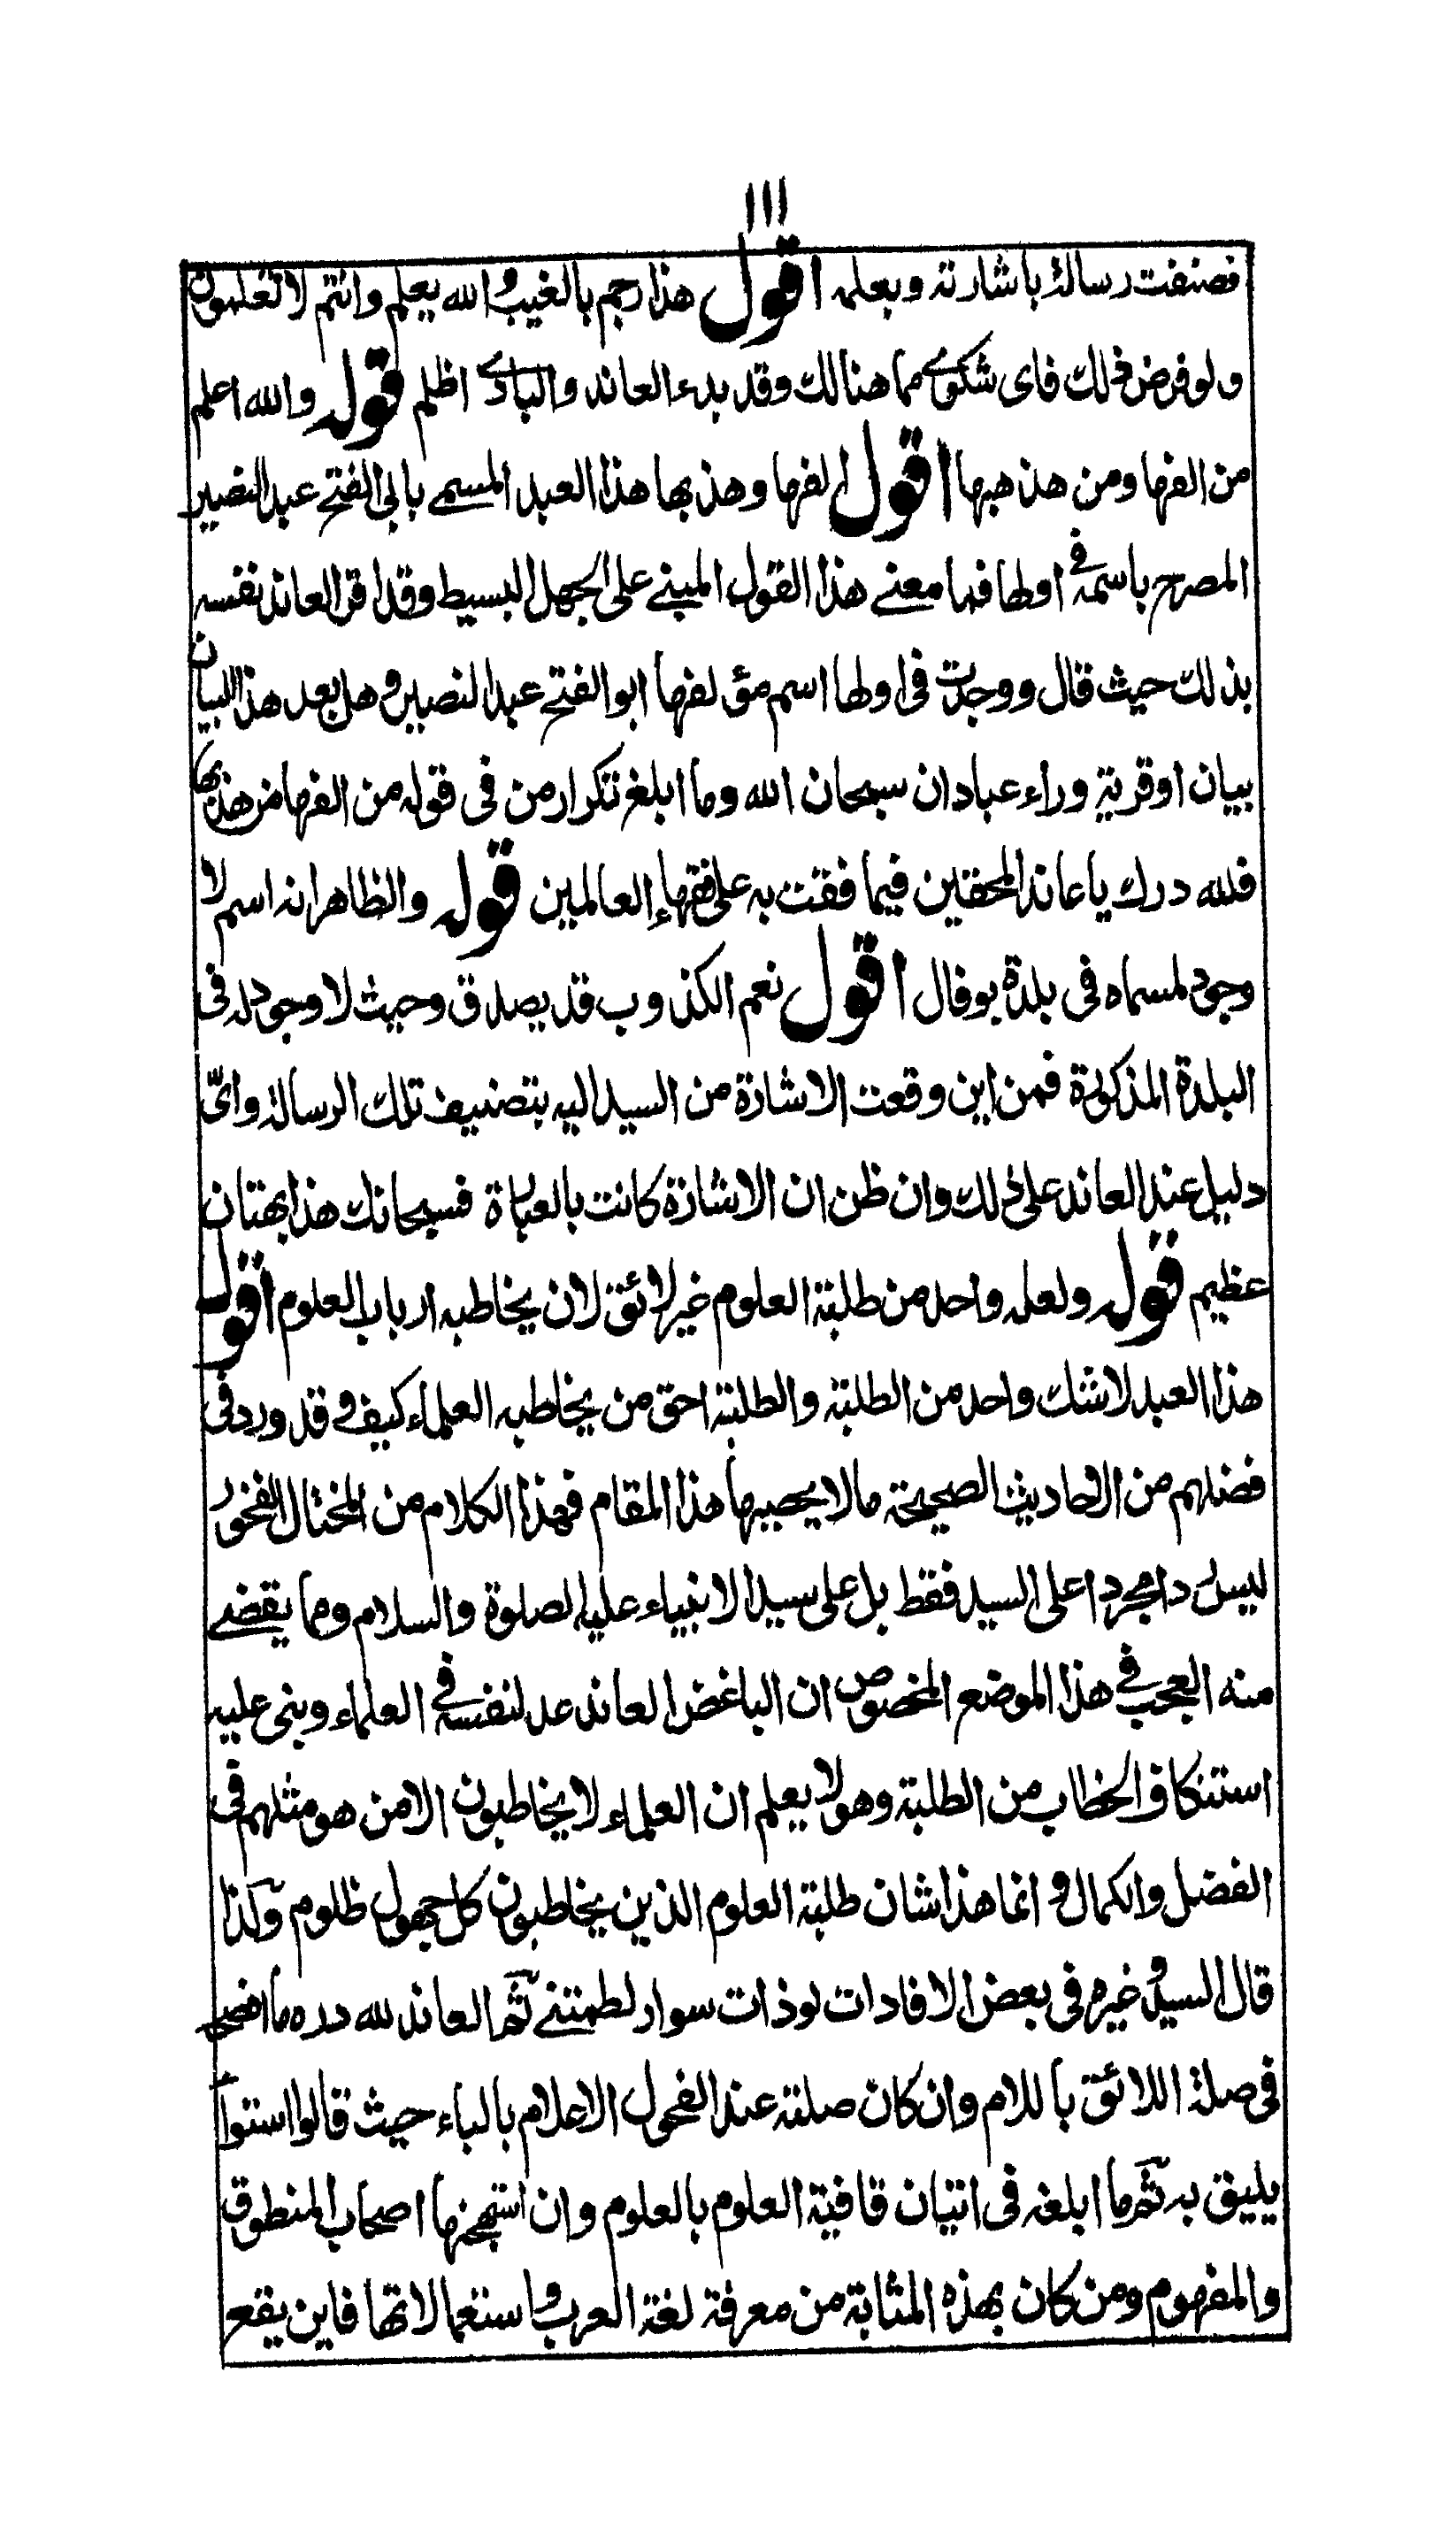 ١١١
فصنفت رسالة باشارته وبعلمه اقول هذا رجم بالغيب والله يعلم وانتم لا تعلمون
ولو فرض ذلك فاى شكوى مما هنالك وقد بدء العاند والبادى اظلم قوله والله اعلم
من الفها ومن هذبها اقول الفها وهذبها هذا العبد المسمى بابى الفتح عبد النصير
المصرح باسمه فى اولها فما معنى هذا القول المبنى على الجهل البسيط وقد اقر العاند نفسه
بذلك حيث قال ووجدت فى اولها اسم مؤلفها ابو الفتح عبد النصير وهل بعد هذا البيان
بيان او قرية وراء عبادان سبحان الله وما ابلغ تكرار من فى قوله من الفها من هذبها
فلله درك يا عاند المحققين فيما فقت به على فقهاء العالمين قوله والظاهر انه اسم لا
وجود لمسماه فى بلدة بوفال اقول نعم الكذوب قد يصدق وحيث لا وجود له فى
البلدة المذكورة فمن اين وقعت الاشارة من السيد اليه بتصنيف تلك الرسالة واىّ
دليل عند العاند على ذلك وان ظن ان الاشارة كانت بالعبارة فسبحانك هذا بهتان
عظيم قوله ولعله واحد من طلبة العلوم غير لائق لان يخاطبه ارباب العلوم اقول
هذا العبد لا شك واحد من الطلبة والطلبة احق من يخاطبه العلماء كيف وقد ورد فى
فضلهم من الاحاديث الصحيحة ما لا يحصيها هذا المقام فهذا الكلام من المختال الفخور
ليس ردا مجردا على السيد فقط بل على سيد الانبياء عليه الصلوة والسلام ومما يقضى
منه العجب فى هذا الموضع المخصوص ان الباغض العاند عد لنفسه فى العلماء وبنى عليه
استنكاف الخطاب من الطلبة وهو لا يعلم ان العلماء لا يخاطبون الا من هو مثلهم فى
الفضل والكمال وانما هذا شان طلبة العلوم الذين يخاطبون كل جهول ظلوم ولذا
قال السيد وغيره فى بعض الافادات لو ذات سوار لطمتنى ثم العاند لله دره ما افصحه
فى صلة اللائق باللام وان كان صلته عند الفحول الاعلام بالباء حيث قالوا استوا
يليق به ثم ما ابلغه فى اتيان قافية العلوم بالعلوم وان استهجنها اصحاب المنطوق
والمفهوم ومن كان بهذه المثابة من معرفة لغة العرب واستعمالاتها فاين يقع